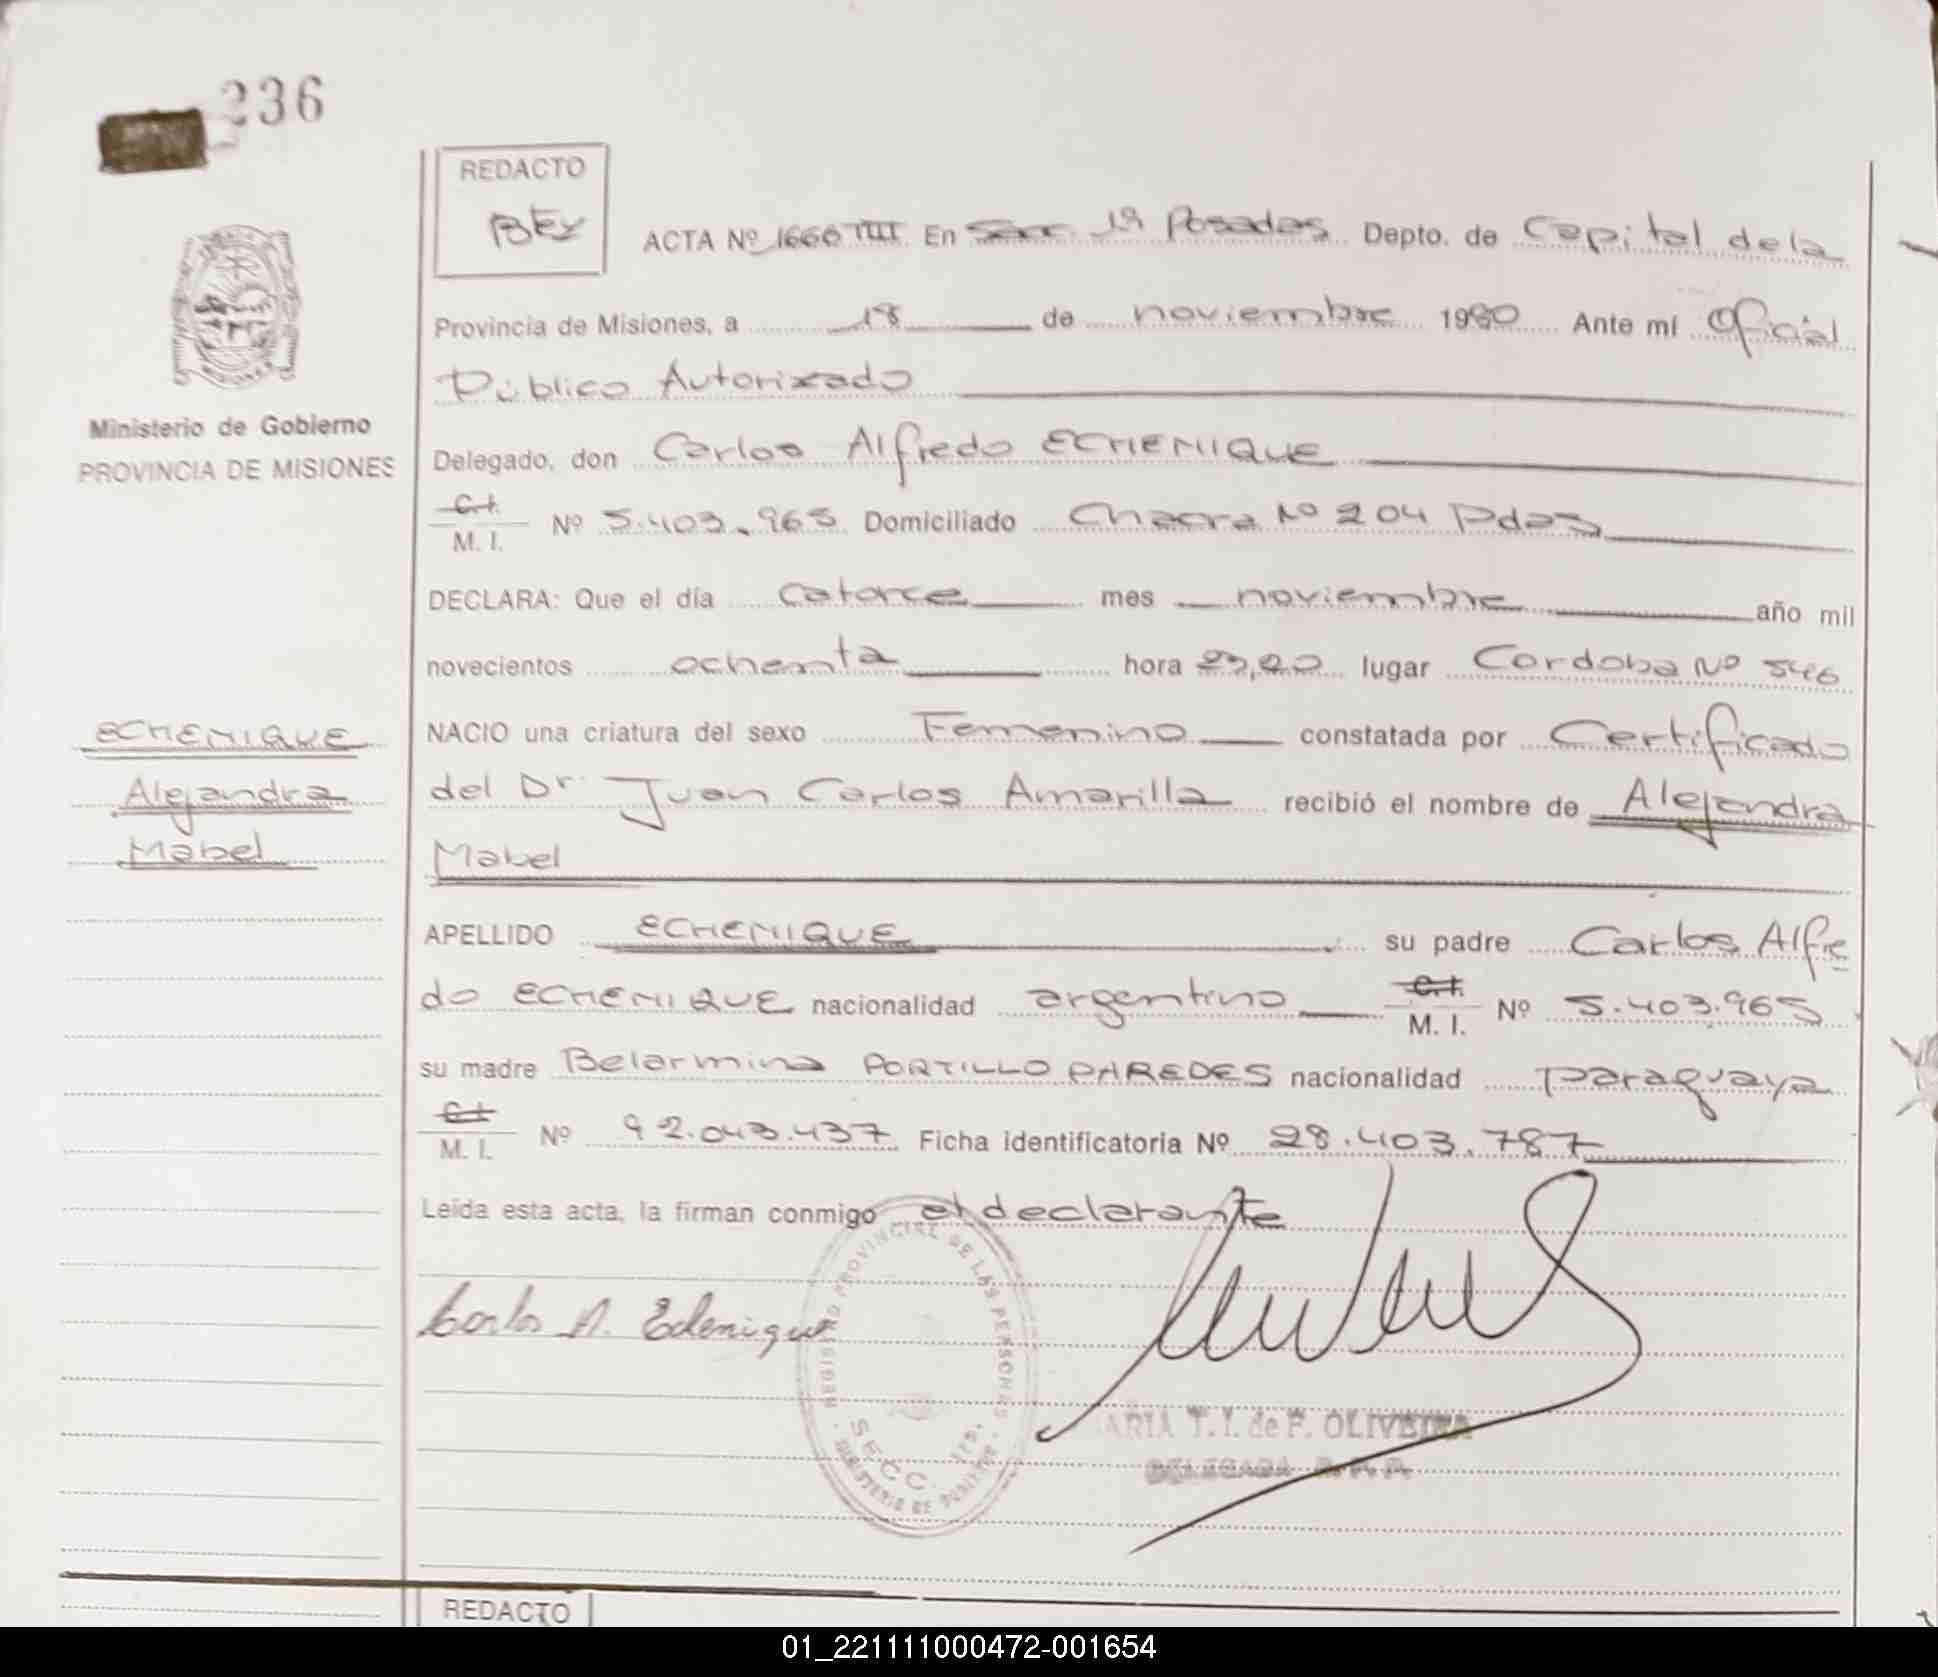 236
REDACTO
BEY
ACTA Nº 1666 TIII En Secc. 1ª Posadas Depto. de Capital de la
Provincia de Misiones, a 18 de noviembre 1980 Ante mí Oficial
Público Autorizado
Ministerio de Gobierno
PROVINCIA DE MISIONES
Delegado, don Carlos Alfredo ECHENIQUE
C.I.
M. I. Nº 5.403.965 Domiciliado Chacra Nº 204 Pdas
DECLARA: Que el día catorce mes noviembre año mil
novecientos ochenta hora 23,20 lugar Cordoba Nº 546
ECHENIQUE
Alejandra
Mabel
NACIO una criatura del sexo Femenino constatada por Certificado
del Dr. Juan Carlos Amarilla recibió el nombre de Alejandra
Mabel
APELLIDO ECHENIQUE su padre Carlos Alfre
do ECHENIQUE nacionalidad argentino C.I. M. I. Nº 5.403.965
su madre Belarmina PORTILLO PAREDES nacionalidad paraguaya
C.I.
M. I. Nº 92.043.437 Ficha identificatoria Nº 28.403.787
Leída esta acta, la firman conmigo el declarante
Carlos A. Echenique
REGISTRO PROVINCIAL DE LAS PERSONAS
SECC. 1ª
MINISTERIO DE GOBIERNO
ARIA T. I. de F. OLIVEIRA
DELEGADA R. P. P.
REDACTO
01_221111000472-001654